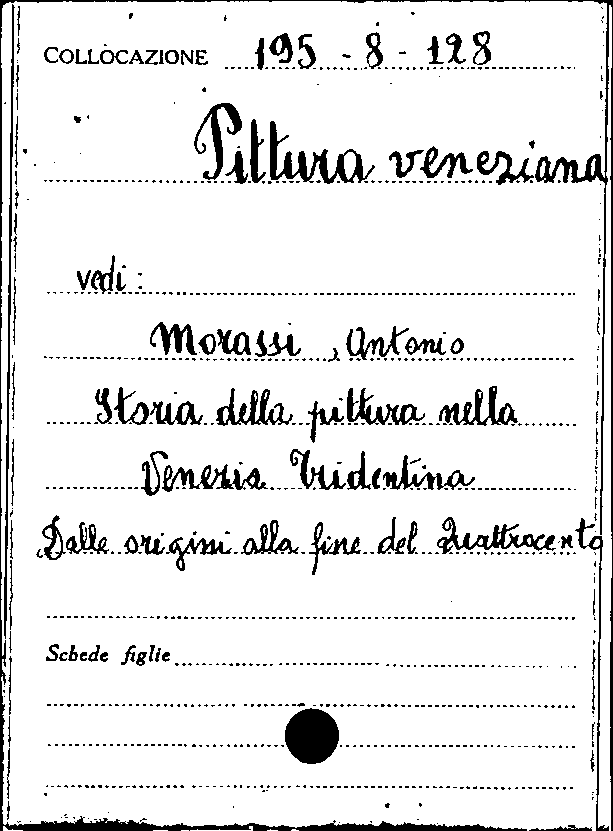 COLLOCAZIONE 195 - 8 - 128
Pittura veneziana
vedi :
Morassi , Antonio
Storia della pittura nella
Venezia Tridentina
Dalle origini alla fine del Quattrocento
Schede figlie